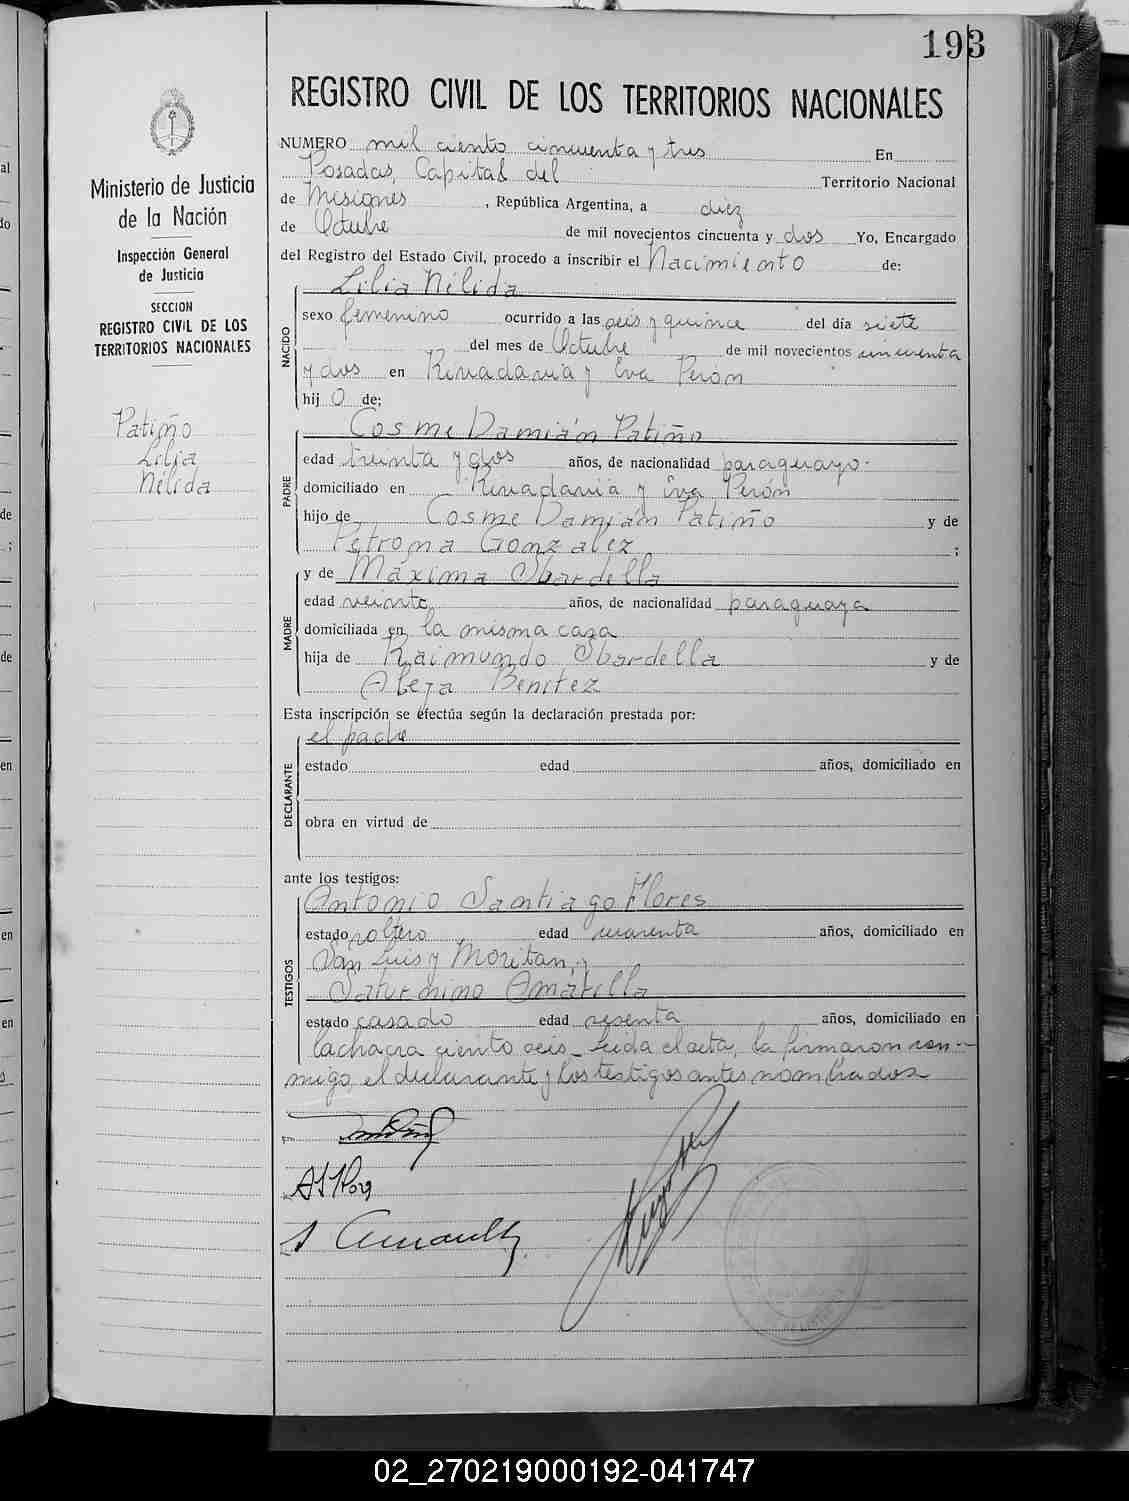 193
REGISTRO CIVIL DE LOS TERRITORIOS NACIONALES
Ministerio de Justicia
de la Nación
Inspección General
de Justicia
SECCION
REGISTRO CIVIL DE LOS
TERRITORIOS NACIONALES
Patiño
Lilia
Nélida
NUMERO mil ciento cincuenta y tres En
Posadas, Capital del Territorio Nacional
de Misiones, República Argentina, a diez
de Octubre de mil novecientos cincuenta y dos Yo, Encargado
del Registro del Estado Civil, procedo a inscribir el Nacimiento de:
Lilia Nélida
NACIDO
sexo femenino ocurrido a las seis y quince del día siete
del mes de Octubre de mil novecientos cincuenta
y dos en Rivadavia y Eva Perón
hij a de:
Cosme Damián Patiño
PADRE
edad treinta y dos años, de nacionalidad paraguayo.
domiciliado en Rivadavia y Eva Perón
hijo de Cosme Damián Patiño y de
Petrona Gonzalez ;
y de Máxima Sbardella
MADRE
edad veinte años, de nacionalidad paraguaya
domiciliada en la misma casa
hija de Raimundo Sbardella y de
Aleja Benítez
Esta inscripción se efectúa según la declaración prestada por:
el padre
DECLARANTE
estado edad años, domiciliado en
obra en virtud de
ante los testigos:
Antonio Santiago Flores
TESTIGOS
estado soltero edad cuarenta años, domiciliado en
San Luis y Moritan, y
Saturnino Amarilla
estado casado edad sesenta años, domiciliado en
la chacra ciento seis_ Leida el acta, la firmaron con-
migo, el declarante y los testigos antes nombrados
02_270219000192-041747